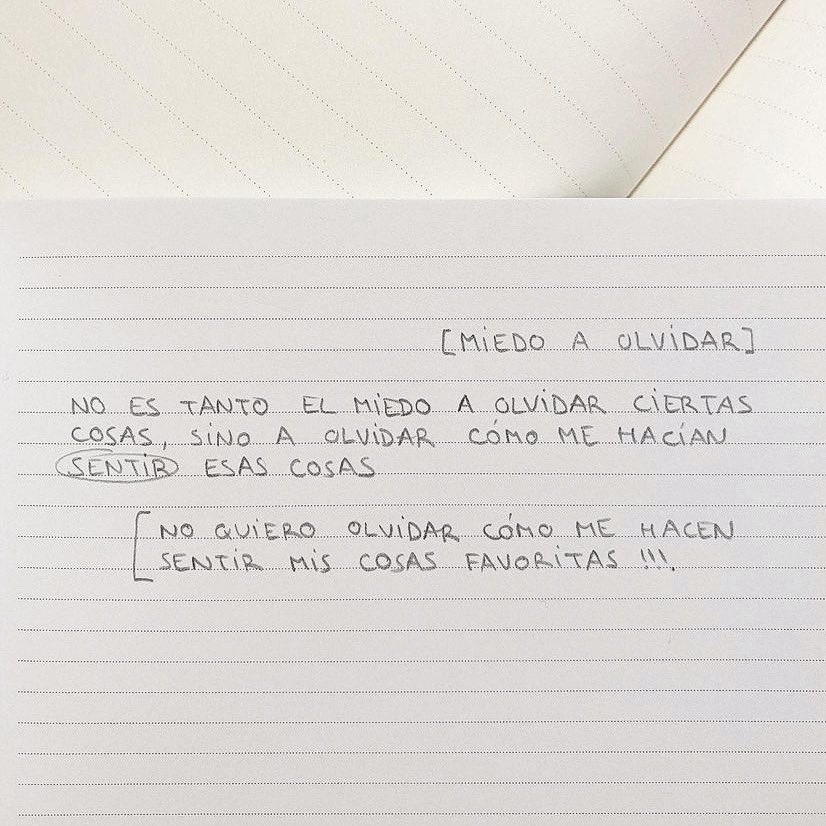 [MIEDO A OLVIDAR]
NO ES TANTO EL MIEDO A OLVIDAR CIERTAS
COSAS, SINO A OLVIDAR CÓMO ME HACÍAN
SENTIR ESAS COSAS
[NO QUIERO OLVIDAR CÓMO ME HACEN
SENTIR MIS COSAS FAVORITAS !!!.